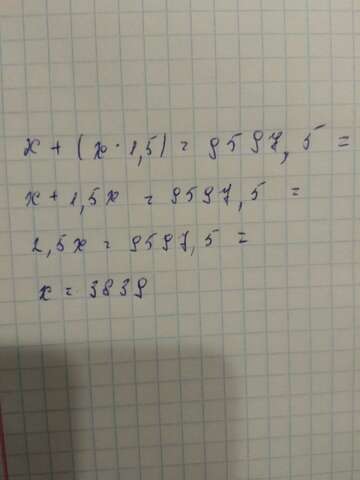 x + (x · 1,5) = 9597,5 =
x + 1,5x = 9597,5 =
2,5x = 9597,5 =
x = 3839